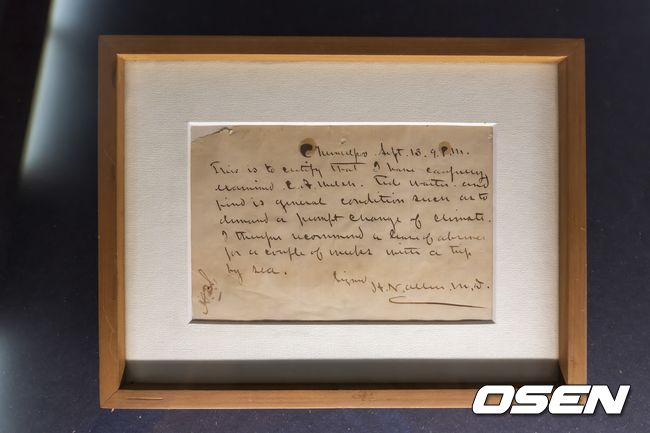 Chemulpo Sept. 13. 9 P.M.
This is to certify that I have carefully
examined C. F. Welch. Tide waiter and
find is general condition such as to
demand a prompt change of climate.
I therefore recommend a leave of absence
for a couple of weeks with a trip
by sea.
Signed H. N. Allen. M.D.
OSEN